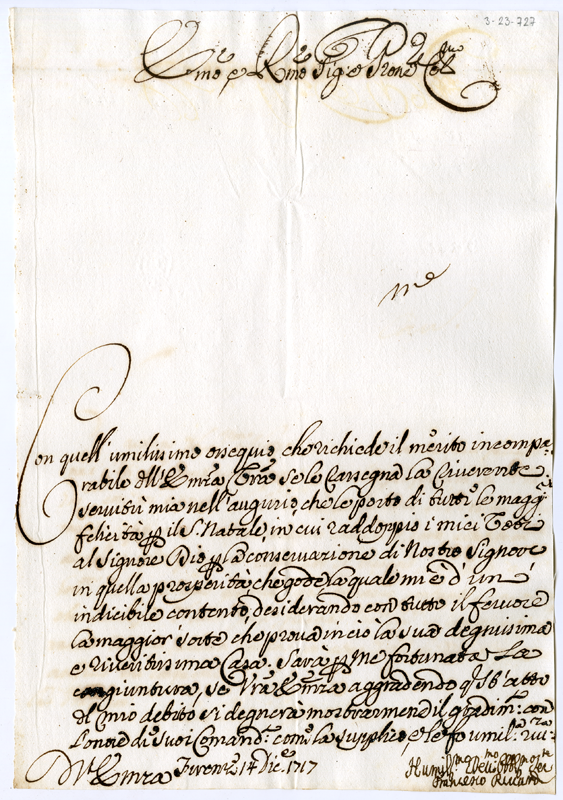 3-23-727
Em.º e Rmo Sig.e Pron Col.mo
Con quell' umilissimo ossequio, che richiede il merito incompa-
rabile dell' Emza Vra se le rassegna la riverente
servitù mia nell' augurio, che le porto di tutte le magg.i
felicità p il S. Natale, in cui raddoppio i miei Voti
al Signore Dio p la conservazione di Nostro Signore
in quella prosperità che gode, la quale mi è d' un'
indicibile contento, desiderando con tutto il fervore
la maggior sorte, che prova in ciò la sua degnissima
e riveritissima Casa. Sarà p me fortunata la
congiuntura, se Vra Emza aggradendo q.to atto
del mio debito si degnerà mostrarmene il gradim.to con
l'onore de suoi Comand.i come la supplico, e le fo umil.ma riv.za
Di V.ra Emza Firenze 14 Dic.e 1717
Humil.mo Obb.mo
Francesco Riccardi